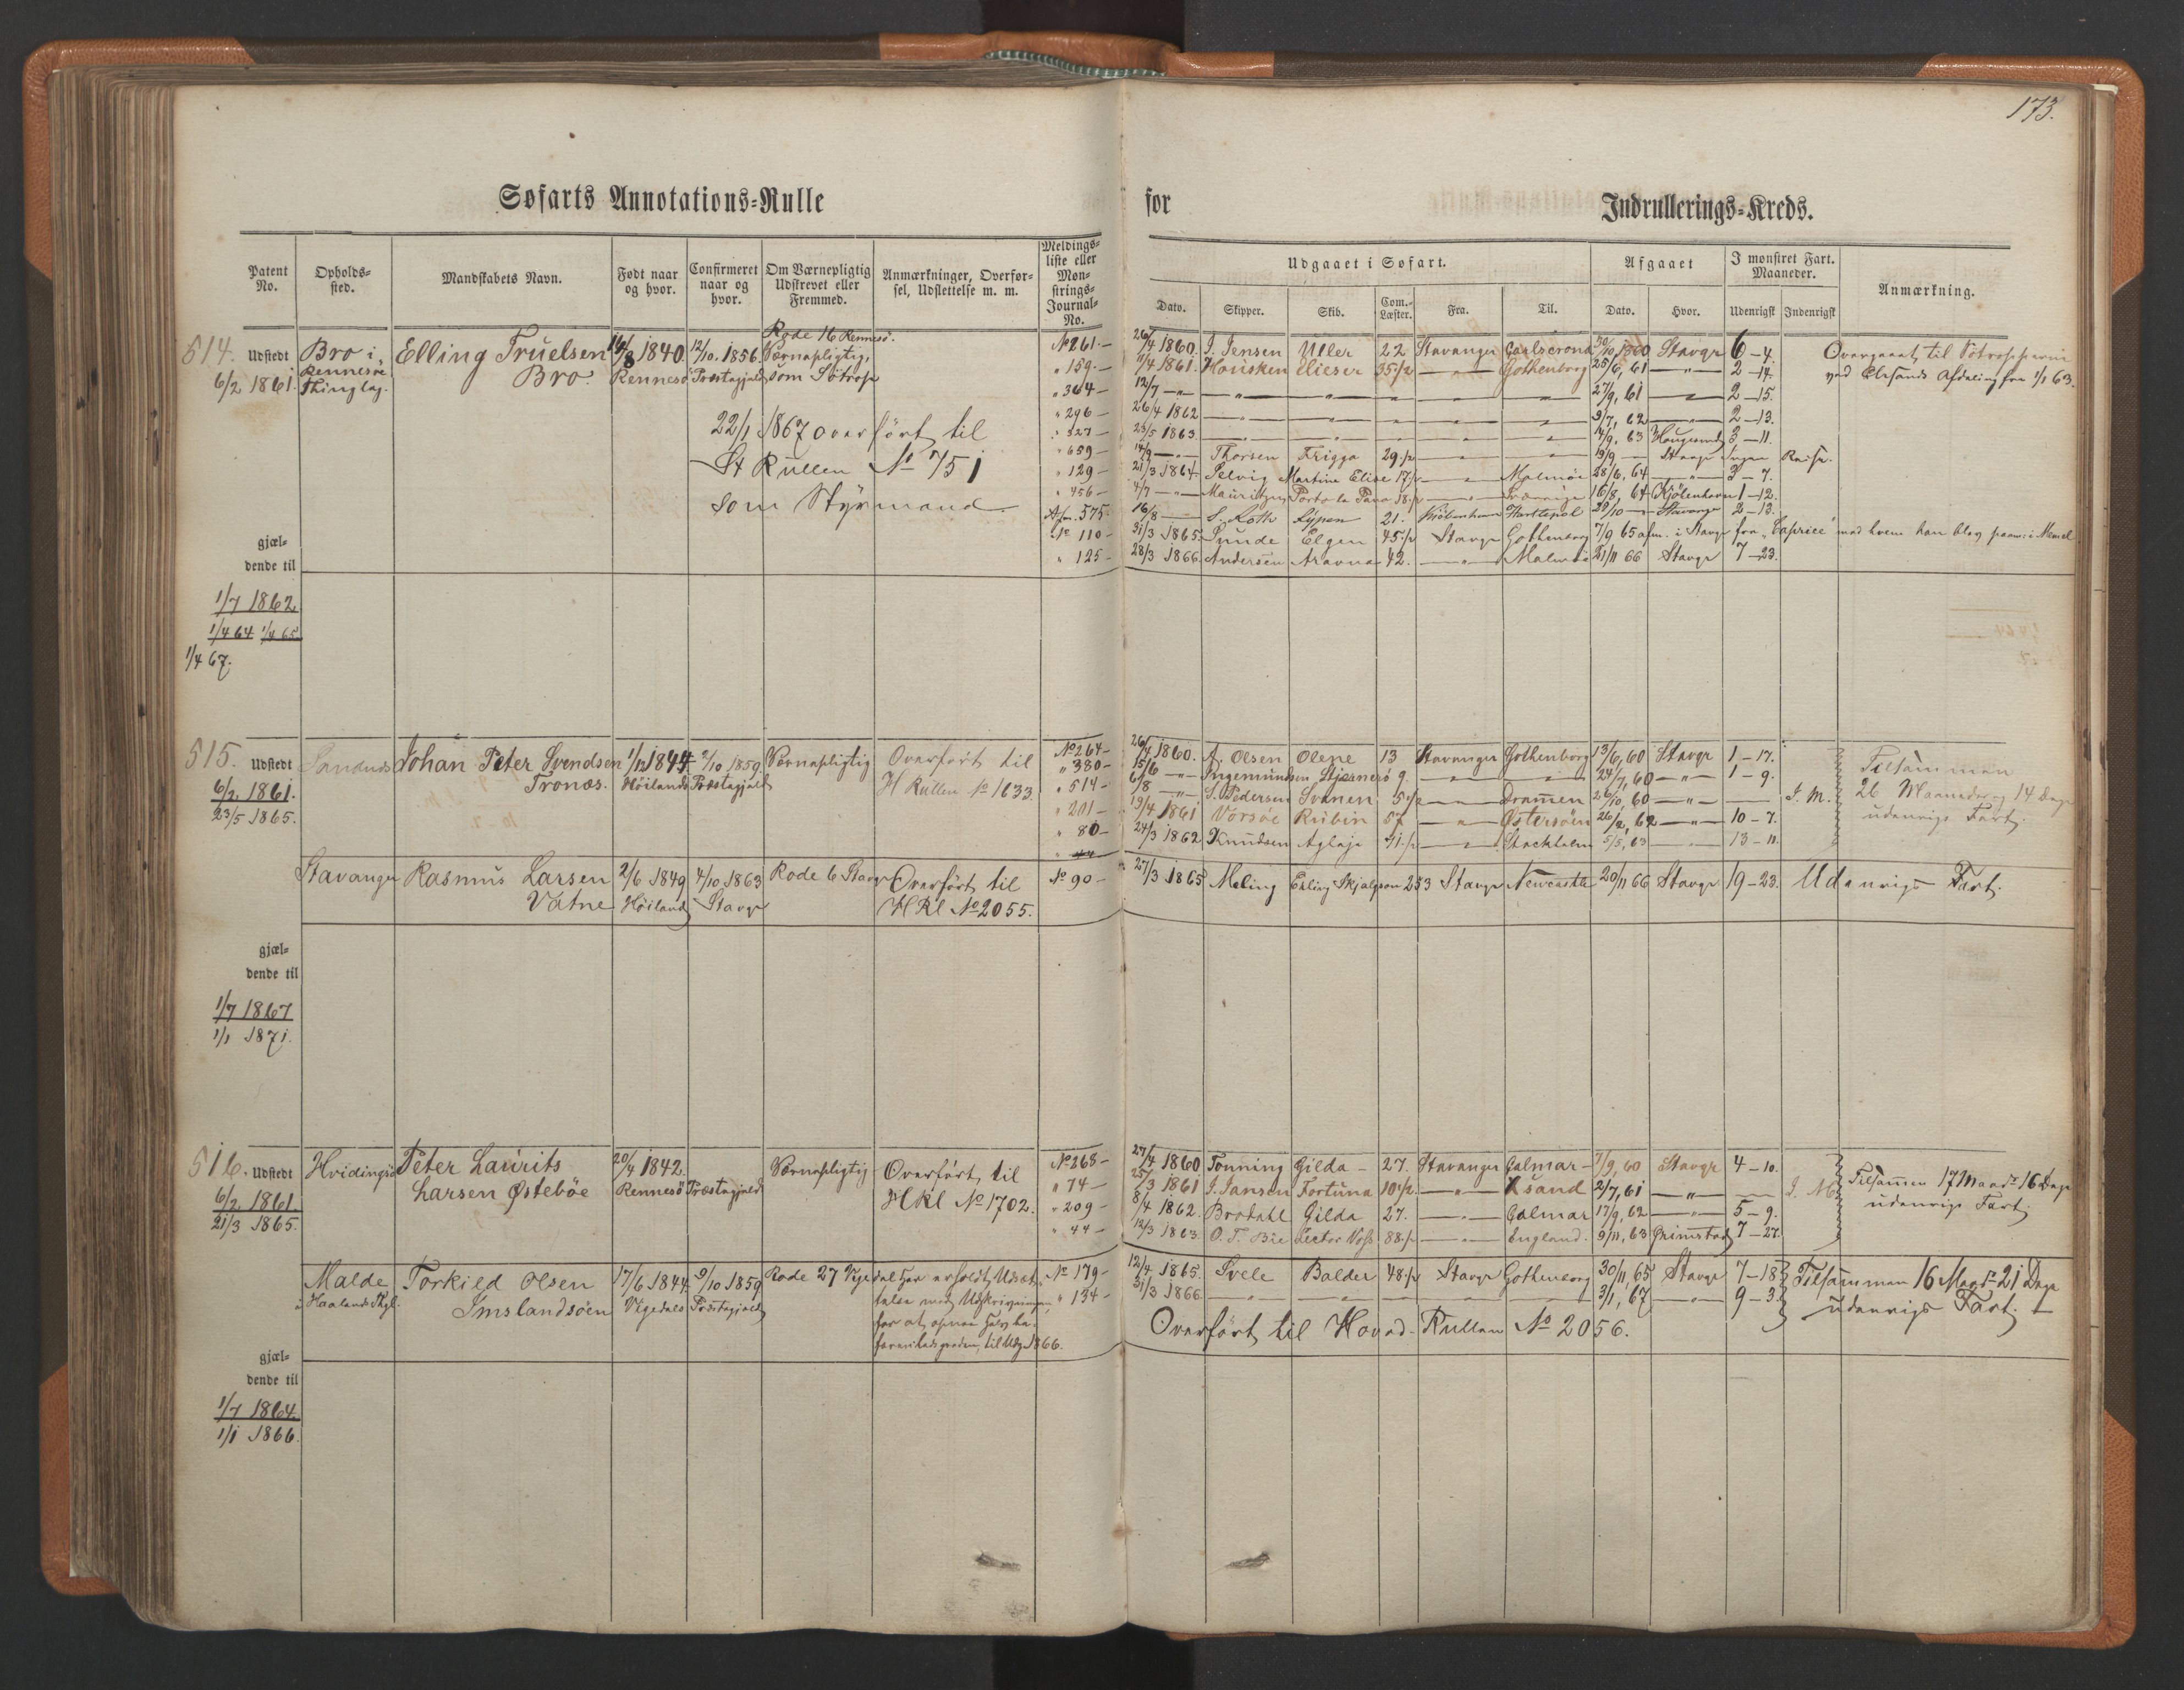 173.
Søfarts Annotations-Rulle for Indrullerings-Kreds.
Patent No.
Opholds-sted.
Mandskabets Navn.
Født naar og hvor.
Confirmeret naar og hvor.
Om Værnepligtig Udskrevet eller Fremmed.
Anmærkninger, Overførsel, Udslettelse m. m.
Meldings-liste eller Mønstrings-Journal-No.
Udgaaet i Søfart.
Dato. Skipper. Skib. Com.-Læster. Fra. Til.
Afgaaet
Dato. Hvor.
I mønstret Fart. Maaneder.
Udenrigst Indenrigst
Anmærkning.
514. Udstedt
6/2 1861.
Bro i
Rennesøe
Thinglag.
Elling Truelsen
Bro.
14/8 1840.
Rennesö
12/10. 1856.
Præstegjeld
Rode 16 Rennesö.
Værnepligtig,
som Sötrop
22/1 1867 overfört til
St Rullen No 751
som Styrmand.
No 261 - 26/4 1860. J. Jensen Uller 22 Stavanger Carlscrona 30/10 1860 Stavgr 6 - 4.
" 159 - 11/4 1861. Housken Elieser 35 1/2 - " - Gothenborg 25/6, 61 - " - 2 - 14.
" 364 - 12/7 - " - - " - - " - 27/9, 61 - " - 2 - 15.
" 296 - 26/4 1862 - " - - " - 9/7, 62 - " - 2 - 13.
" 327 - 23/5 1863. - " - - " - 14/9, 63 Haugesund 3 - 11.
" 659 - Thorsen Frigga 29 1/2 - " - - " - 19/9 - Stavgr Ingen Reise.
" 129 - 21/3 1864 Selvig Martine Elise 17 1/2 - " - Malmöe 28/6, 64 - " - 3 - 7.
" 456 - 4/7 - " - Mauritzen 18 1/2 - " - 16/8, 64 Kjöbenhavn 1 - 12.
Afm. 575 16/8 - S. Roth 21. Kjöbenhavn Hartlepol 28/10 - Stavanger 2 - 13.
No 110 - 31/3 1865 Tunde Elgen 45 1/2 Stavgr Gothenborg 7/9 65 afm. i Stavgr fra "Caprice" med hvem han blev paam: i Memel
" 125 - 28/3 1866. Andersen 42. - " - Malmö 21/11 66 Stavgr 7 - 23.
Overgaaet til Sötropperne
ved Clesands Afdeling fra 1/1 63.
gjæl-
dende til
1/7 1862
1/4 64 1/4 65.
1/4 67.
515. Udstedt
6/2 1861.
23/5 1865.
Sandnes
Johan Peter Svendsen
Tronæs.
1/12 1844
Höilands
2/10 1859
Præstegjæld
Værnepligtig
Overfört til
H Rullen No 1633.
No 264 - 26/4 1860. A. Olsen Olene 13 Stavanger Gothenborg 13/6, 60 Stavgr 1 - 17.
" 380 - 15/6 - " - Ingemundsen Stjernerö 9. - " - - " - 24/7, 60 - " - 1 - 9.
" 514 - 6/8 - " - S. Pedersen Svanen 5 1/2 - " - Drammen 26/10, 60 - " - - I. M.
" 201 - 19/4 1861 Vorsöe Rubin 57 - " - Östersöen 26/2, 62 - " - 10 - 7.
" 80 - 24/3 1862 Knudsen Aglaja 41 1/2 - " - Stockholm 5/5, 63 - 13 - 11.
Tilsammen
26 Maaneder og 14 Dage
udenrigs Fart.
Stavanger
Rasmus Larsen
Vatne
2/6 1849
Höiland
4/10 1863
Stavgr
Rode 6 Stavgr
Overfört til
HRl No 2055.
No 90 - 27/3 1865 Meling Erling Skjalgson 253 Stavgr Newcastle 20/11 66 Stavgr 19 - 23. Udenrigs Fart.
gjæl-
dende til
1/7 1867
1/1 1871.
516. Udstedt
6/2 1861
21/3 1865.
Hvidingsö
Peter Laurits
Larsen Østebøe
20/4 1842.
Rennesö Præstegjæld
Værnepligtig
Overfört til
HRl No 1702.
No 268 - 27/4 1860 Tonning Gilda - 27. Stavanger Calmar - 7/9, 60 Stavgr 4 - 10.
" 74 - 25/3 1861 J. Jansen Fortuna 10 1/2. - " - Xsand 2/7, 61 - " - - I. M.
" 209 - 8/4 1862. Brodahl Gilda 27. - " - Calmar 17/9, 62 - " - 5 - 9.
" 44 - 12/3 1863. O. T. Bie Lector Voss 88 1/2 - " - England. 9/11, 63 Grimstad 7 - 27.
Tilsammen 17 Maadr 16 Dage
udenrigs Fart.
Malde
i Haalands Thgl.
Torkild Olsen
Imslandsöen
17/6 1844.
Vigedals
9/10 1859
Præstegjæld
Rode 27 Vigedal
Har erholdt Udsæt-
telse med Udskrivningen
for at opnaa
til Udg. 1866.
No 179 - 12/4 1865. Svele Balder 48 1/2 Stavgr Gothenborg 30/11 65 Stavgr 7 - 18
" 134 - 31/3 1866 - " - - " - 3/1, 67 - " - 9 - 3.
Tilsammen 16 Maadr 21 Dage
udenrigs Fart.
Overfört til Hoved-Rullen No 2056.
gjæl-
dende til
1/7 1864.
1/1 1866.